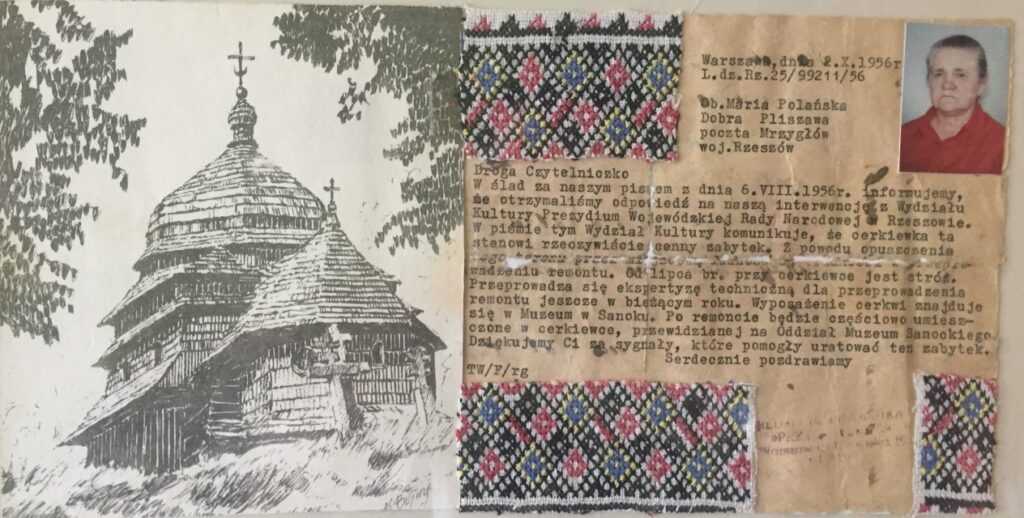 Warszawa, dnia 2.X.1956r
L.dz.Rz.25/99211/56
Ob.Maria Polańska
Dobra Pliszawa
poczta Mrzygłów
woj.Rzeszów
Droga Czytelniczko
W ślad za naszym pismem z dnia 6.VIII.1956r. informujemy,
że otrzymaliśmy odpowiedź na naszą interwencję z Wydziału
Kultury Prezydium Wojewódzkiej Rady Narodowej w Rzeszowie.
W piśmie tym Wydział Kultury komunikuje, że cerkiewka ta
stanowi rzeczywiście cenny zabytek. Z powodu opuszczenia
wadzeniu remontu. Od lipca br. przy cerkiewce jest stróż.
Przeprowadza się ekspertyzę techniczną dla przeprowadzenia
remontu jeszcze w bieżącym roku. Wyposażenie cerkwi znajduje
się w Muzeum w Sanoku. Po remoncie będzie częściowo umiesz-
czone w cerkiewce, przewidzianej na Oddział Muzeum Sanockiego.
Dziękujemy Ci za sygnały, które pomogły uratować ten zabytek.
Serdecznie pozdrawiamy
TW/F/rg